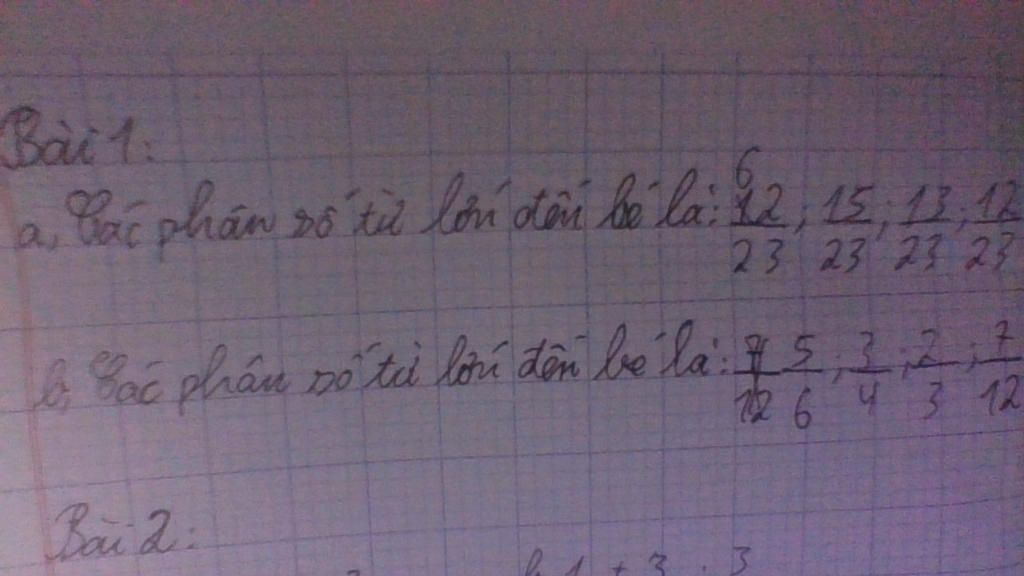 Bài 1:
a, Các phân số từ lớn đến bé là: 16/23; 15/23; 13/23; 12/23
b, Các phân số từ lớn đến bé là: 5/6; 3/4; 2/3; 7/12
Bài 2: